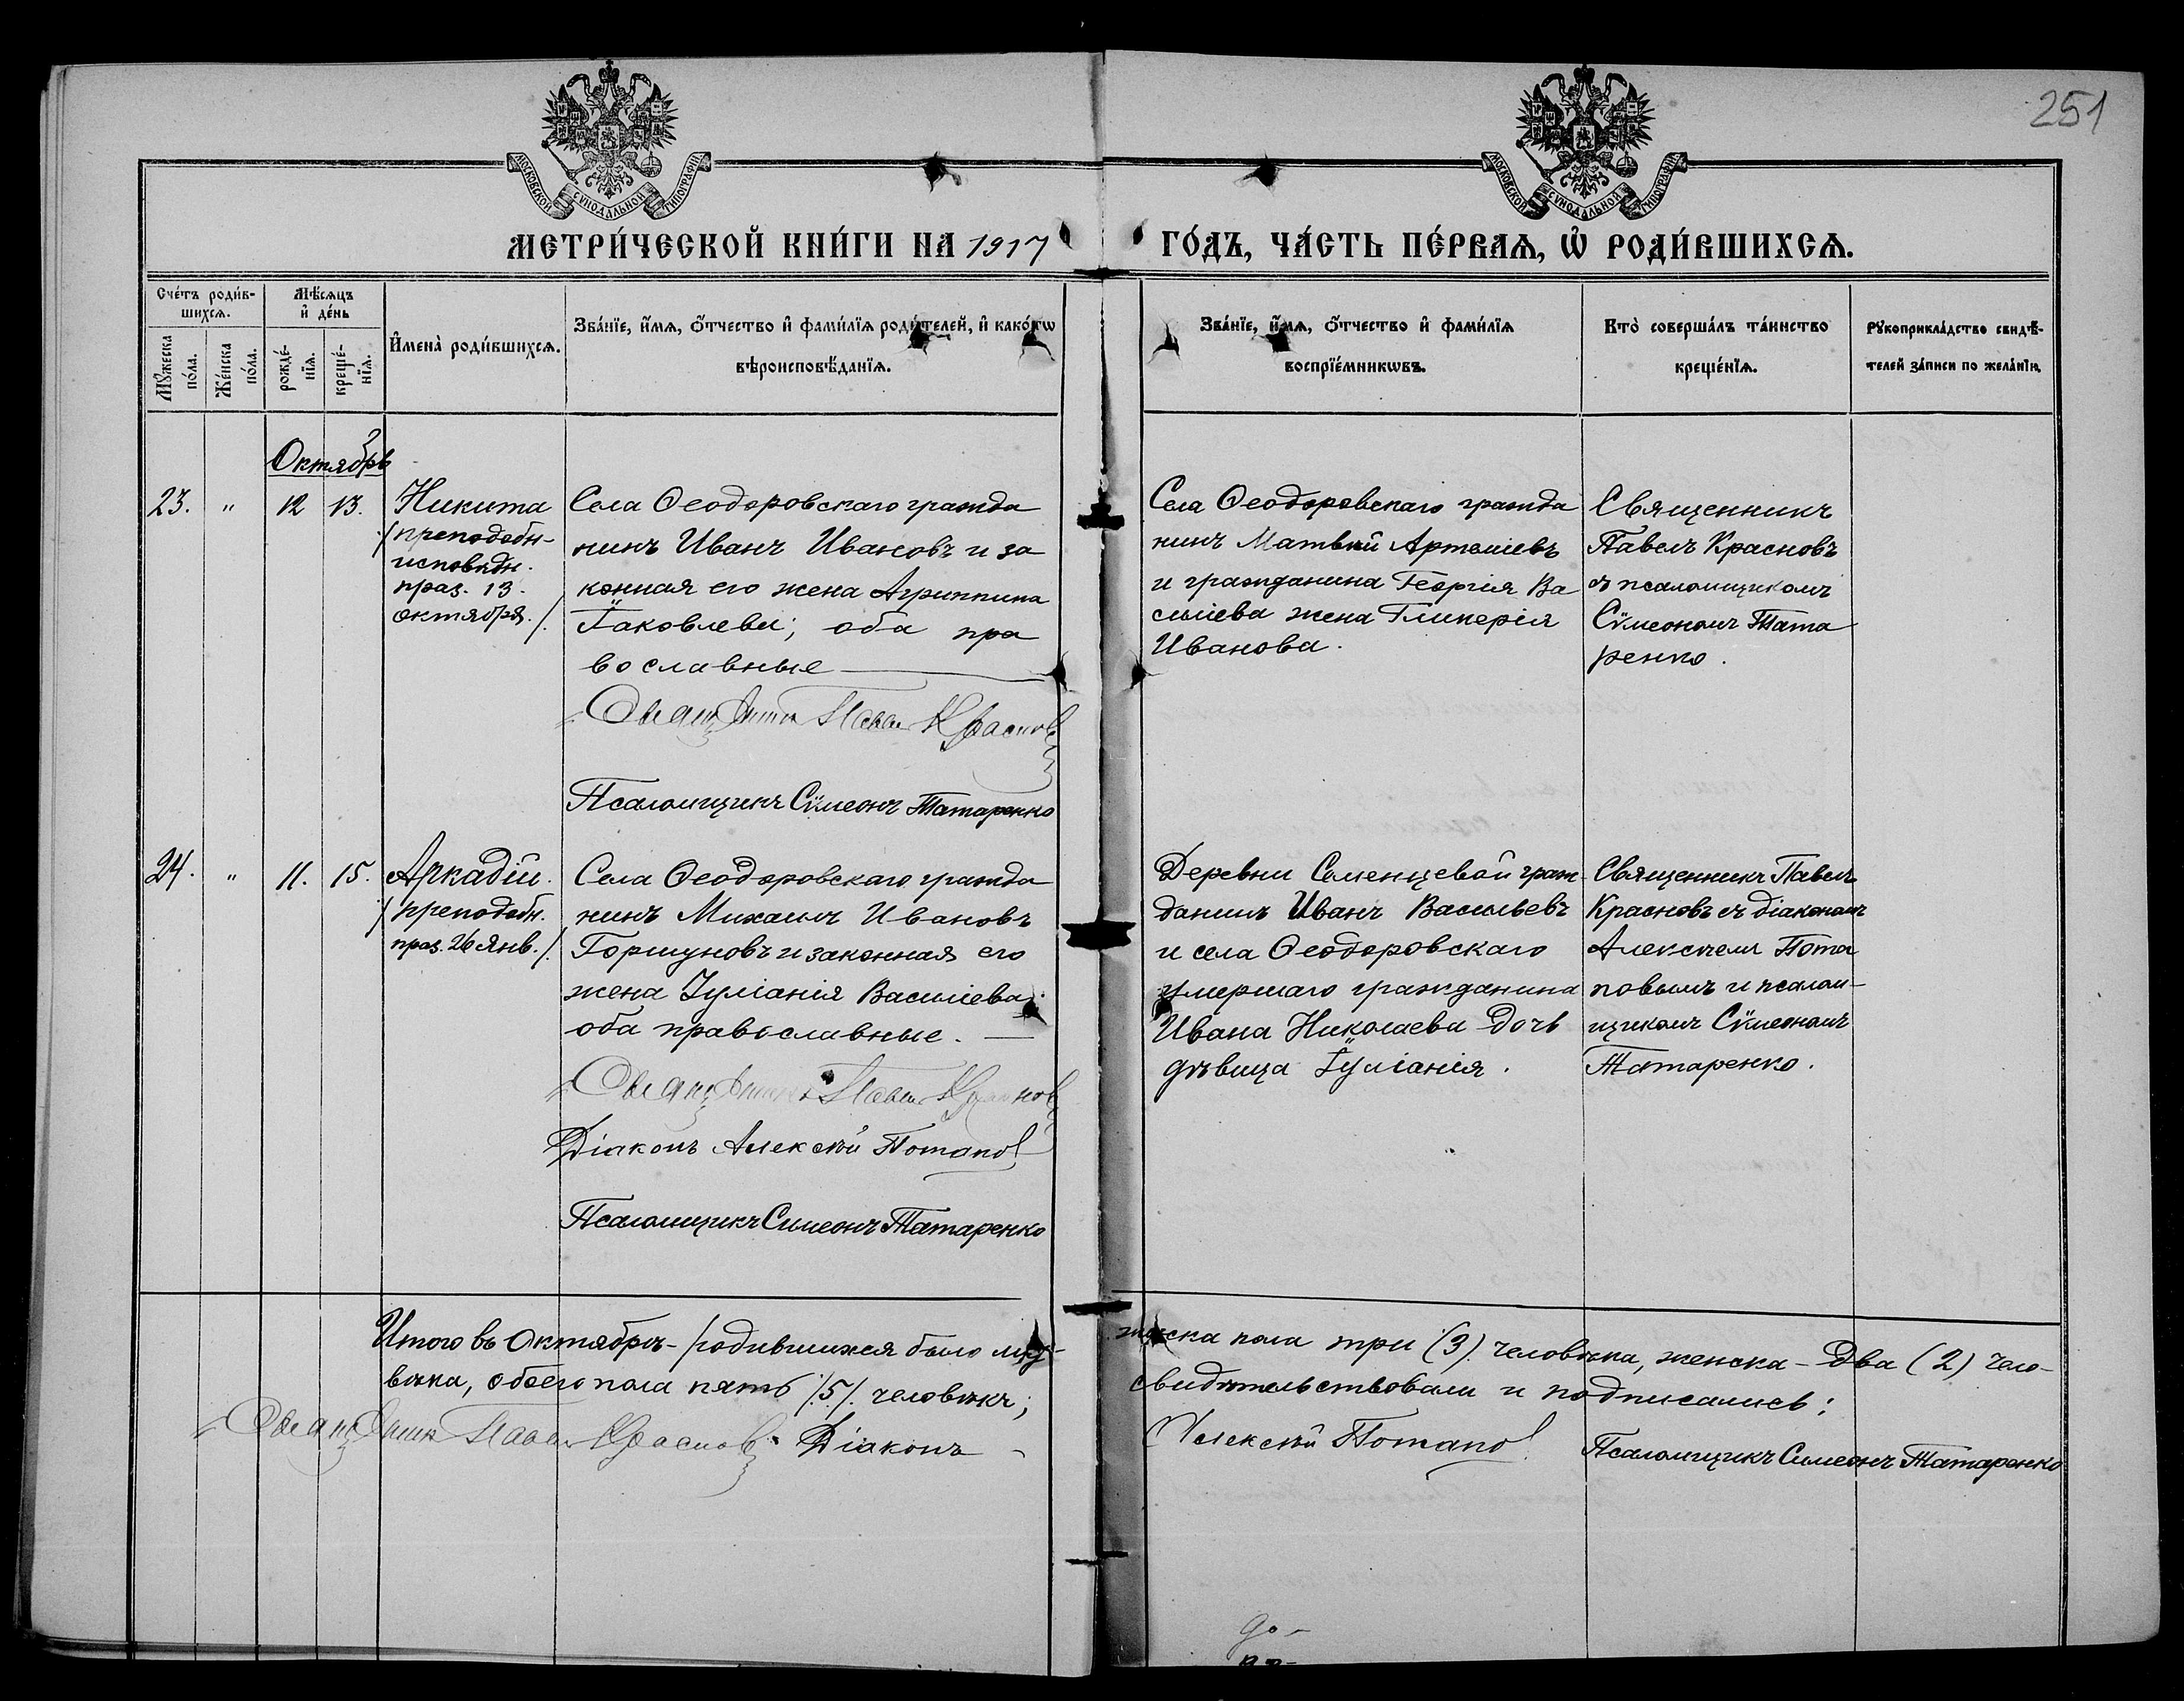 251
МОСКОВСКОЙ СѴНОДАЛЬНОЙ ТИПОГРАФІИ
МОСКОВСКОЙ СѴНОДАЛЬНОЙ ТИПОГРАФІИ
МЕТРИ́ЧЕСКОЙ КНИ́ГИ НА 1917
ГО́ДЪ, ЧА́СТЬ ПЕ́РВАѦ, Ѽ РОДИ́ВШИХСѦ.
Сче́тъ роди́в-
шихсѧ.
Мꙋ́жеска
по́ла.
Же́нска
по́ла.
Мѣ́сѧцъ
и҆ де́нь
рожде́-
нїѧ.
креще́-
нїѧ.
И҆мена̀ роди́вшихсѧ.
Зва́нїе, и҆́мѧ, ѻ҆́тчество и҆ фами́лїѧ роди́телей, и҆ како́гѡ
вѣроисповѣ́данїѧ.
Зва́нїе, и҆́мѧ, ѻ҆́тчество и҆ фами́лїѧ
воспрїе́мникѡвъ.
Кто̀ соверша́лъ та́инство
креще́нїѧ.
Рꙋкоприкла́дство свидѣ́-
телей за́писи по жела́нїю.
Октябрь
23.
"
12
13.
Никита
/преподобн-
исповѣдн.
праз. 13.
октября./.
Села Ѳеодоровскаго гражда
нинъ Иванъ Ивановъ и за
конная его жена Агриппина
Іаковлева; оба пра
вославные
Священникъ Павелъ Красновъ
Псаломщикъ Сѵмеонъ Татаренко
Села Ѳеодоровскаго гражда
нинъ Матвѣй Артеміевъ
и гражданина Георгія Ва
сильева жена Гликерія
Иванова.
Священникъ
Павелъ Красновъ
съ псаломщикомъ
Сѵмеономъ Тата
ренко.
24.
"
11.
15.
Аркадій.
/преподобн.
праз. 26 янв./.
Села Ѳеодоровскаго гражда
нинъ Михаилъ Ивановъ
Горшуновъ и законная его
жена Іуліанія Василіева;
оба православные.
Священникъ Павелъ Красновъ
Діаконъ Алексѣй Потапов
Псаломщикъ Симеонъ Татаренко
Деревни Семенцевой граж-
данинъ Иванъ Васильевъ
и села Ѳеодоровскаго
умершаго гражданина
Ивана Николаева дочь
дѣвица Іуліанія.
Священникъ Павелъ
Красновъ съ діакономъ
Алексѣемъ Пота
повымъ и псалом-
щикомъ Сѵмеономъ
Татаренко.
Итого въ октябрѣ - родившихся было муж-
жеска пола три (3) человѣка, женска - два (2) чело-
вѣка, обоего пола пять /.5/. человѣкъ;
свидѣтельствовали и подписались:
Священникъ Павелъ Красновъ. Діаконъ -
Алексѣй Потапов
Псаломщикъ Симеонъ Татаренко
до-